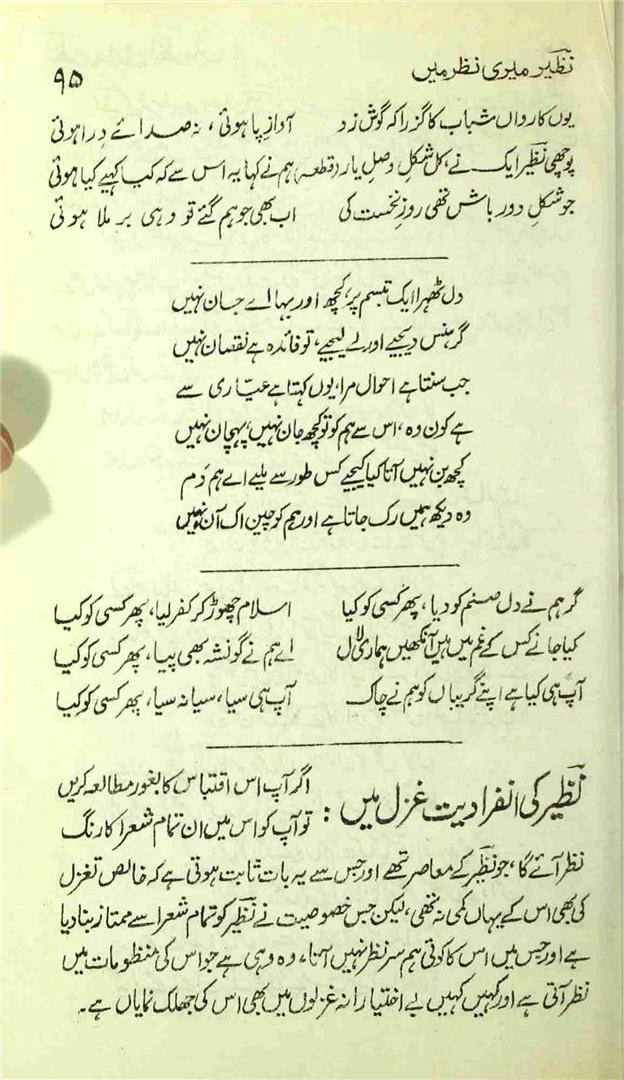 نظیر میری نظر میں ۹۵
یوں کارواں شباب کا گزرا کہ گوش زد آوازِ پا ہوئی، نہ صدائے درا ہوئی
پوچھی نظیر ایک نے، کل شکلِ وصلِ یار (قطعہ) ہم نے کہا یہ اس سے کہ کیا کہیے کیا ہوئی
جو شکل دور باش تھی روزِ نخست کی اب بھی جو ہم گئے تو وہی برملا ہوئی
دل ٹھہرا ایک تبسم پر، کچھ اور بہا اے جان نہیں
گر ہنس دیجیے اور لے لیجیے، تو فائدہ ہے نقصان نہیں
جب سنتا ہے احوال مرا، یوں کہتا ہے عیّاری سے
ہے کون وہ، اس سے ہم کو تو کچھ جان نہیں، پہچان نہیں
کچھ بن نہیں آتا کیا کیجیے کس طور سے ملیے اے ہم دم
وہ دیکھ ہمیں رک جاتا ہے اور ہم کو چین اک آن نہیں
گر ہم نے دل صنم کو دیا، پھر کسی کو کیا اسلام چھوڑ کر کفر لیا، پھر کسی کو کیا
کیا جانے کس کے غم میں ہیں آنکھیں ہماری لال اے ہم نے گو نشہ بھی پیا، پھر کسی کو کیا
آپ ہی کیا ہے اپنے گریباں کو ہم نے چاک آپ ہی سیا، سیا نہ سیا، پھر کسی کو کیا
نظیر کی انفرادیت غزل میں: اگر آپ اس اقتباس کا بغور مطالعہ کریں
تو آپ کو اس میں ان تمام شعرا کا رنگ
نظر آئے گا، جو نظیر کے معاصر تھے اور جس سے یہ بات ثابت ہوتی ہے کہ خالص تغزل
کی بھی اس کے یہاں کمی نہ تھی، لیکن جس خصوصیت نے نظیر کو تمام شعرا سے ممتاز بنا دیا
ہے اور جس میں اس کا کوئی ہم سر نظر نہیں آتا، وہ وہی ہے جو اس کی منظومات میں
نظر آتی ہے اور کہیں کہیں بے اختیارانہ غزلوں میں بھی اس کی جھلک نمایاں ہے۔